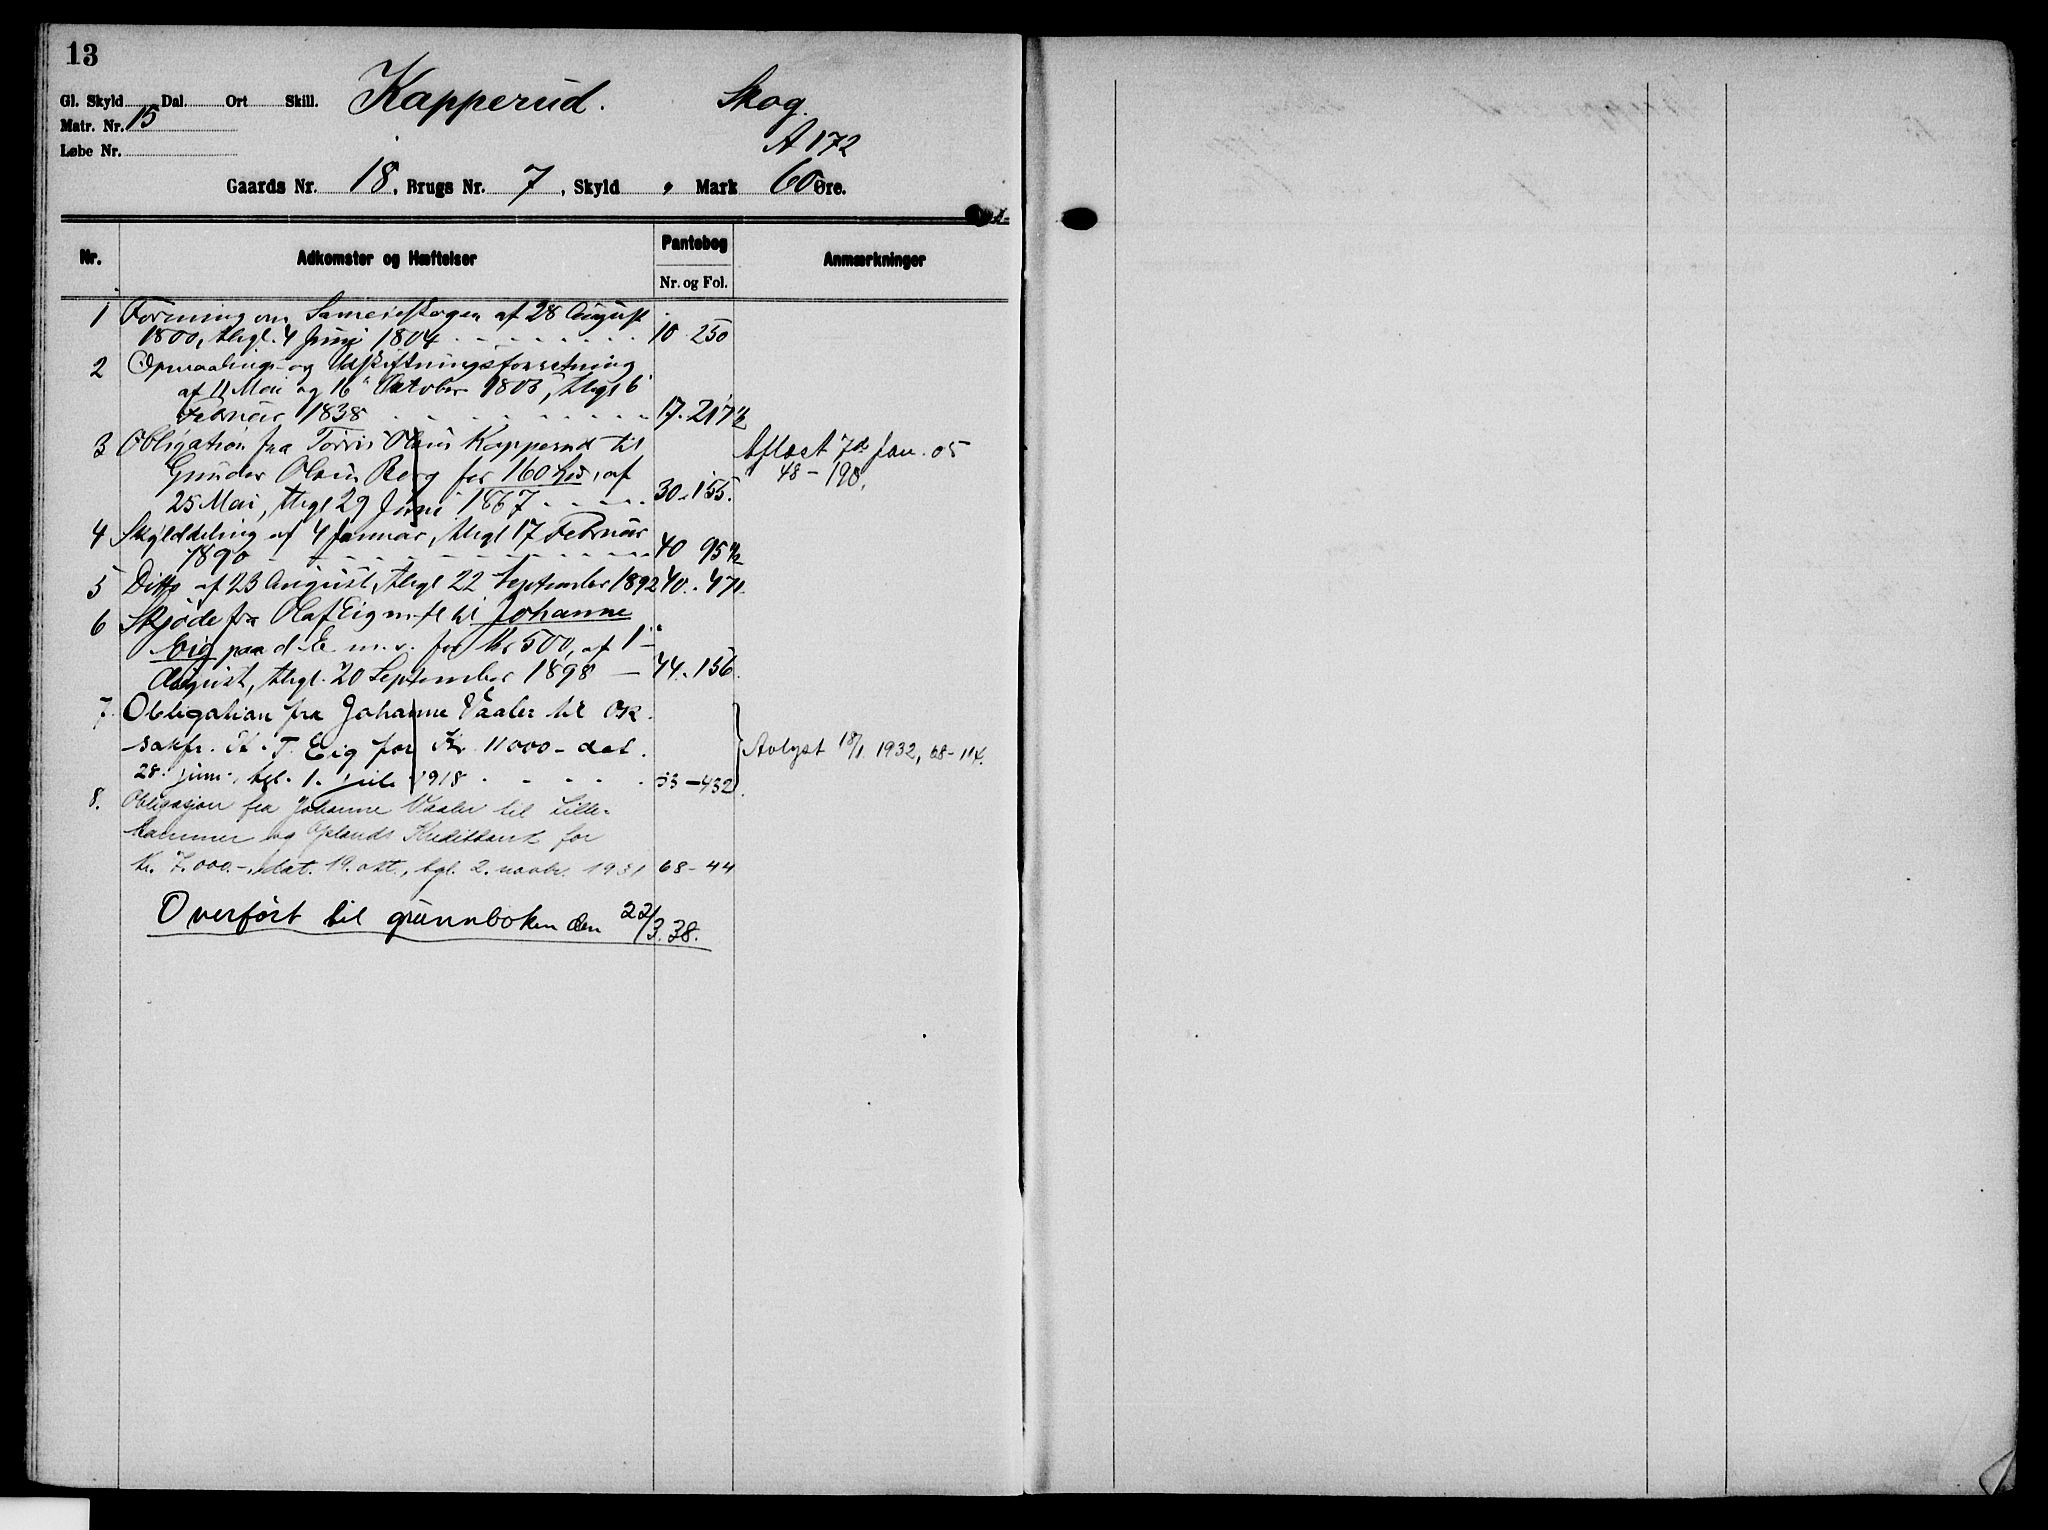 13
Gl. Skyld Dal. Ort Skill. Kapperud. Skog.
Matr. Nr. 15
A 172
Løbe Nr.
Gaards Nr. 18, Brugs Nr. 7, Skyld , Mark 60 Øre.
Nr. Adkomster og Hæftelser Pantebog Anmærkninger
Nr. og Fol.
1 Forening om Sameieskogen af 28 August
1800, thgl. 4 Juni 1804 10 250
2 Opmaalings- og Udskiftningsforretning
af 11 Mai og 16 Oktober 1803, thgl 6
Februar 1838 17. 217 1/2
3 Obligation fra Torris Olsen Kapperud til
Gunder Olsen Berg for 160 , af
25 Mai, thgl 29 Juni 1867 30. 155. Aflæst 7de Jan. 05
48 - 198.
4 Skylddeling af 4 Januar, thgl 17 Februar
1890 40 95
5 Ditto af 23 August, thgl 22 September 1892 40. 471.
6 Skjøde fra Olaf Eig m. fl. til Johanne
Eig paa d. E. m. v. for Kr 500, af 1
August, thgl. 20 September 1898 — 44. 156.
7. Obligation fra Johanne Vaaler til
sakfr. T. Eig for Kr 11000 - dat.
28. juni, tgl. 1. juli 1918 53 - 432 Avlyst 18/1 1932, 68 - 114.
8. Obligasjon fra Johanne Vaaler til Lille-
hammer og Oplands Kreditbank for
Kr. 7.000.-, dat. 19. okt., tgl. 2. novbr. 1931 68 - 44
Overført til grunnboken den 22/3. 38.